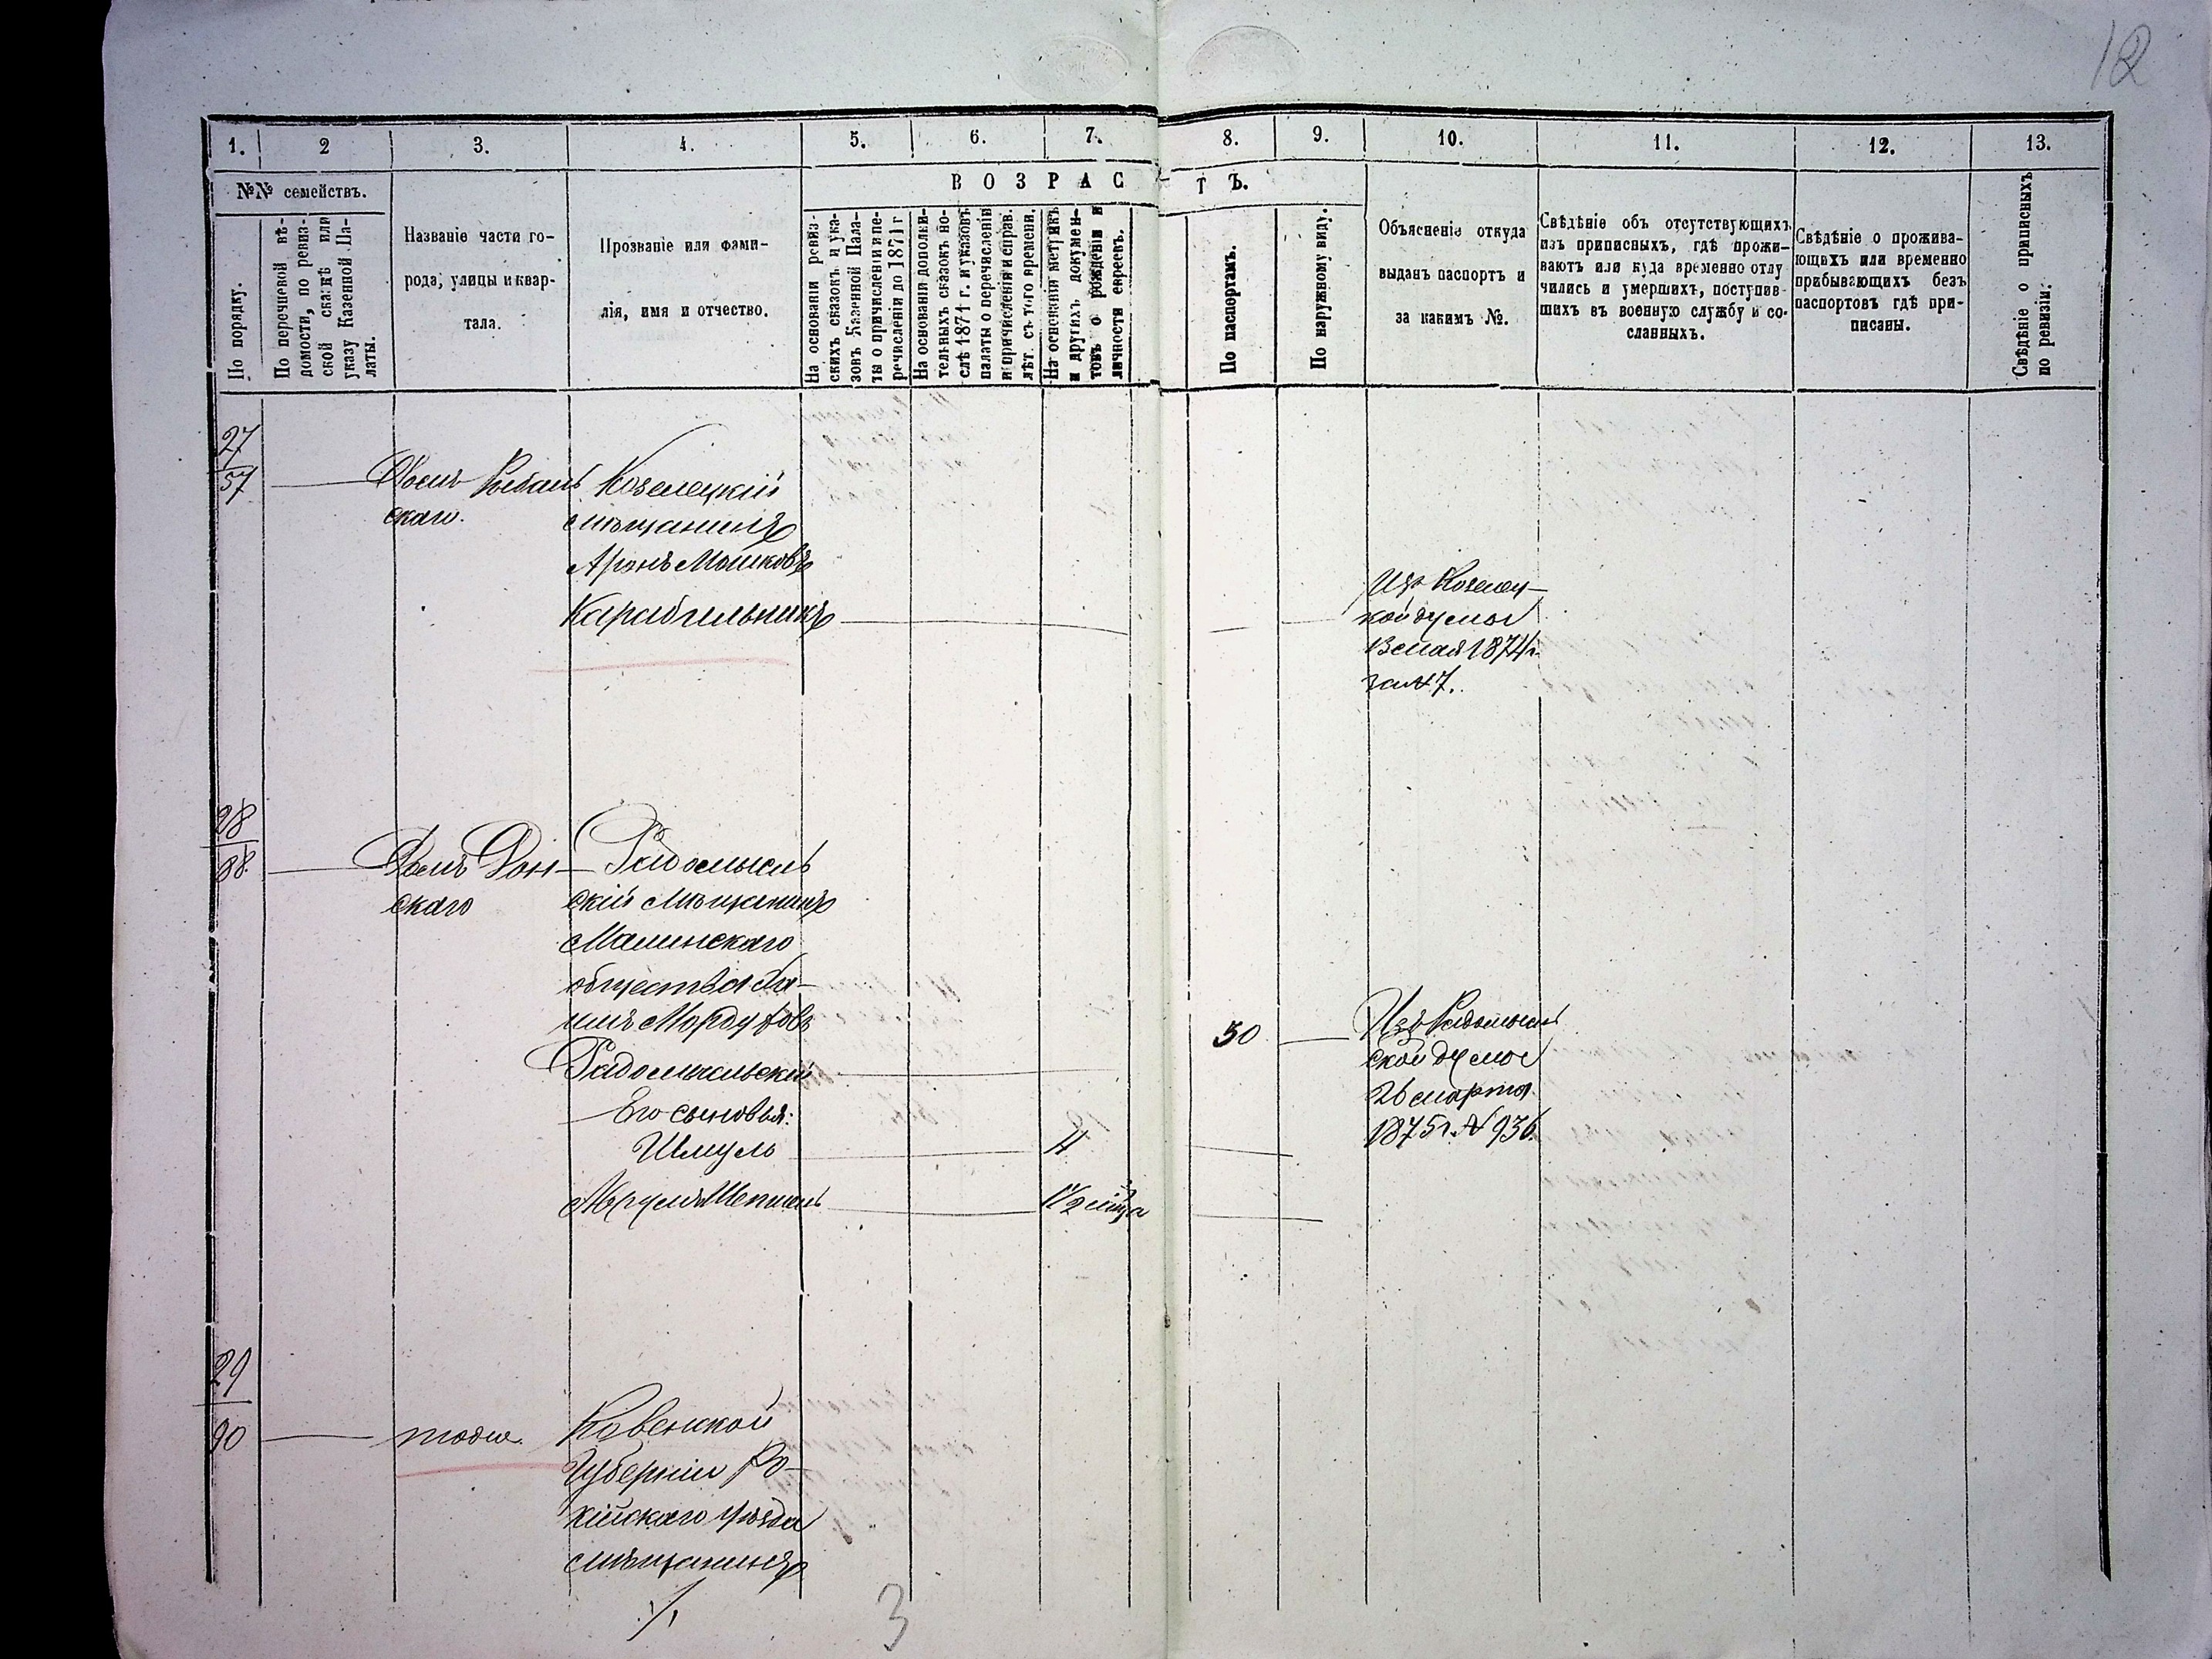 12
1. 2 3. 4. 5. 6. 7. 8. 9. 10. 11. 12. 13.
№№ семействъ.
По порядку.
По перечневой вѣ-
домости, по ревиз-
ской сказкѣ или
указу Казенной Па-
латы.
Названіе части го-
рода, улицы и квар-
тала.
Прозваніе или фами-
лія, имя и отчество.
ВОЗРАСТЪ.
На основаніи ревиз-
скихъ сказокъ и ука-
зовъ Казенной Пала-
ты о причисленіи и пе-
речисленіи до 1871 г
На основаніи дополни-
тельныхъ сказокъ по-
слѣ 1871 г. и указовъ
палаты о перечисленіи
и причисленіи и справ.
лѣт. съ того времени.
На основаніи метрикъ
и другихъ докумен-
товъ о рожденіи и
личности евреевъ.
По паспортамъ.
По наружному виду.
Объясненіе откуда
выданъ паспортъ и
за какимъ №.
Свѣдѣніе объ отсутствующихъ
изъ приписныхъ, гдѣ прожи-
ваютъ или куда временно отлу
чились и умершихъ, поступив-
шихъ въ военную службу и со-
сланныхъ.
Свѣдѣніе о прожива-
ющихъ или временно
прибывающихъ безъ
паспортовъ гдѣ при-
писаны.
Свѣдѣніе о приписныхъ
по ревизіи.
27
57
Домъ
скаго.
Козелецкій
мѣщанинъ
Аронъ Мошковъ
Карабельникъ
Изъ Козелец-
кой думы
13 мая 1874 г.
за № 7.
28
88.
Домъ Дон-
скаго
Радомысль
скій мѣщанинъ
Малинскаго
общества Ха-
имъ Мордуховъ
Радомысльскій
50
Изъ Радомысль
ской думы
26 марта
1875 г. № 936.
Его сыновья:
Шмуль
11
1 1/2 мѣца
29
90
тоже.
Ковенской
Губерніи
уѣзда
мѣщанинъ
./.
3